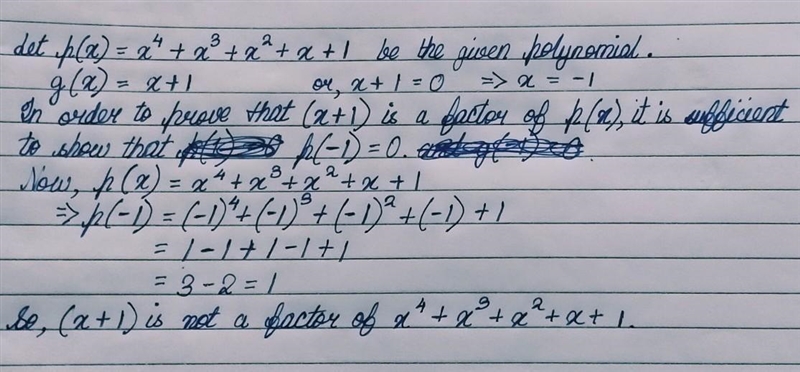 Let p(x) = x⁴ + x³ + x² + x + 1 be the given polynomial.
g(x) = x + 1 or, x + 1 = 0 ⇒ x = -1
In order to prove that (x+1) is a factor of p(x), it is sufficient
to show that p(-1) = 0.
Now, p(x) = x⁴ + x³ + x² + x + 1
⇒ p(-1) = (-1)⁴ + (-1)³ + (-1)² + (-1) + 1
= 1 - 1 + 1 - 1 + 1
= 3 - 2 = 1
So, (x+1) is not a factor of x⁴ + x³ + x² + x + 1.